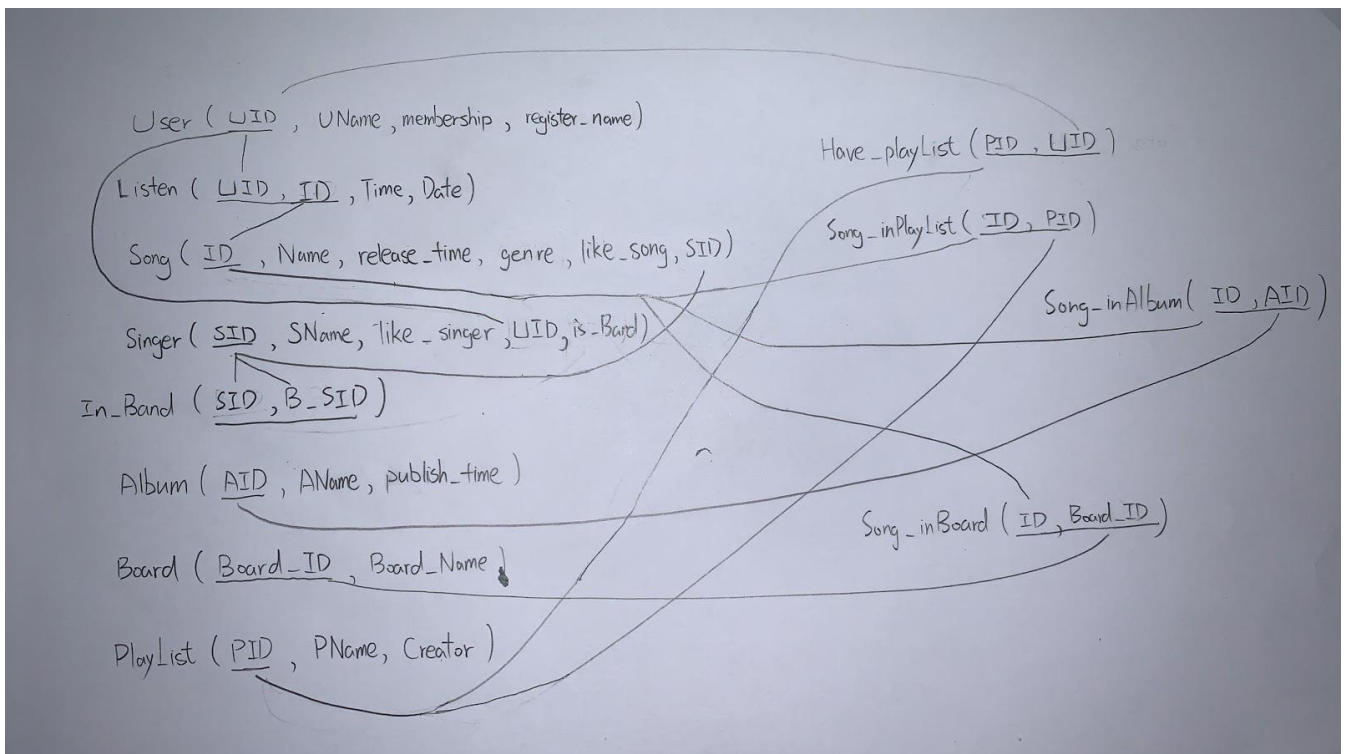 User ( UID , UName , membership , register_name)
Listen ( UID , ID , Time, Date)
Song ( ID , Name, release_time, genre , like_song, SID)
Singer ( SID , SName, like_singer , UID, is_Band)
In_Band ( SID , B_SID )
Album ( AID , AName, publish_time )
Board ( Board_ID , Board_Name )
PlayList ( PID , PName, Creator )
Have_playList ( PID , UID )
Song_inPlayList ( ID , PID )
Song_inAlbum ( ID , AID )
Song_inBoard ( ID , Board_ID )